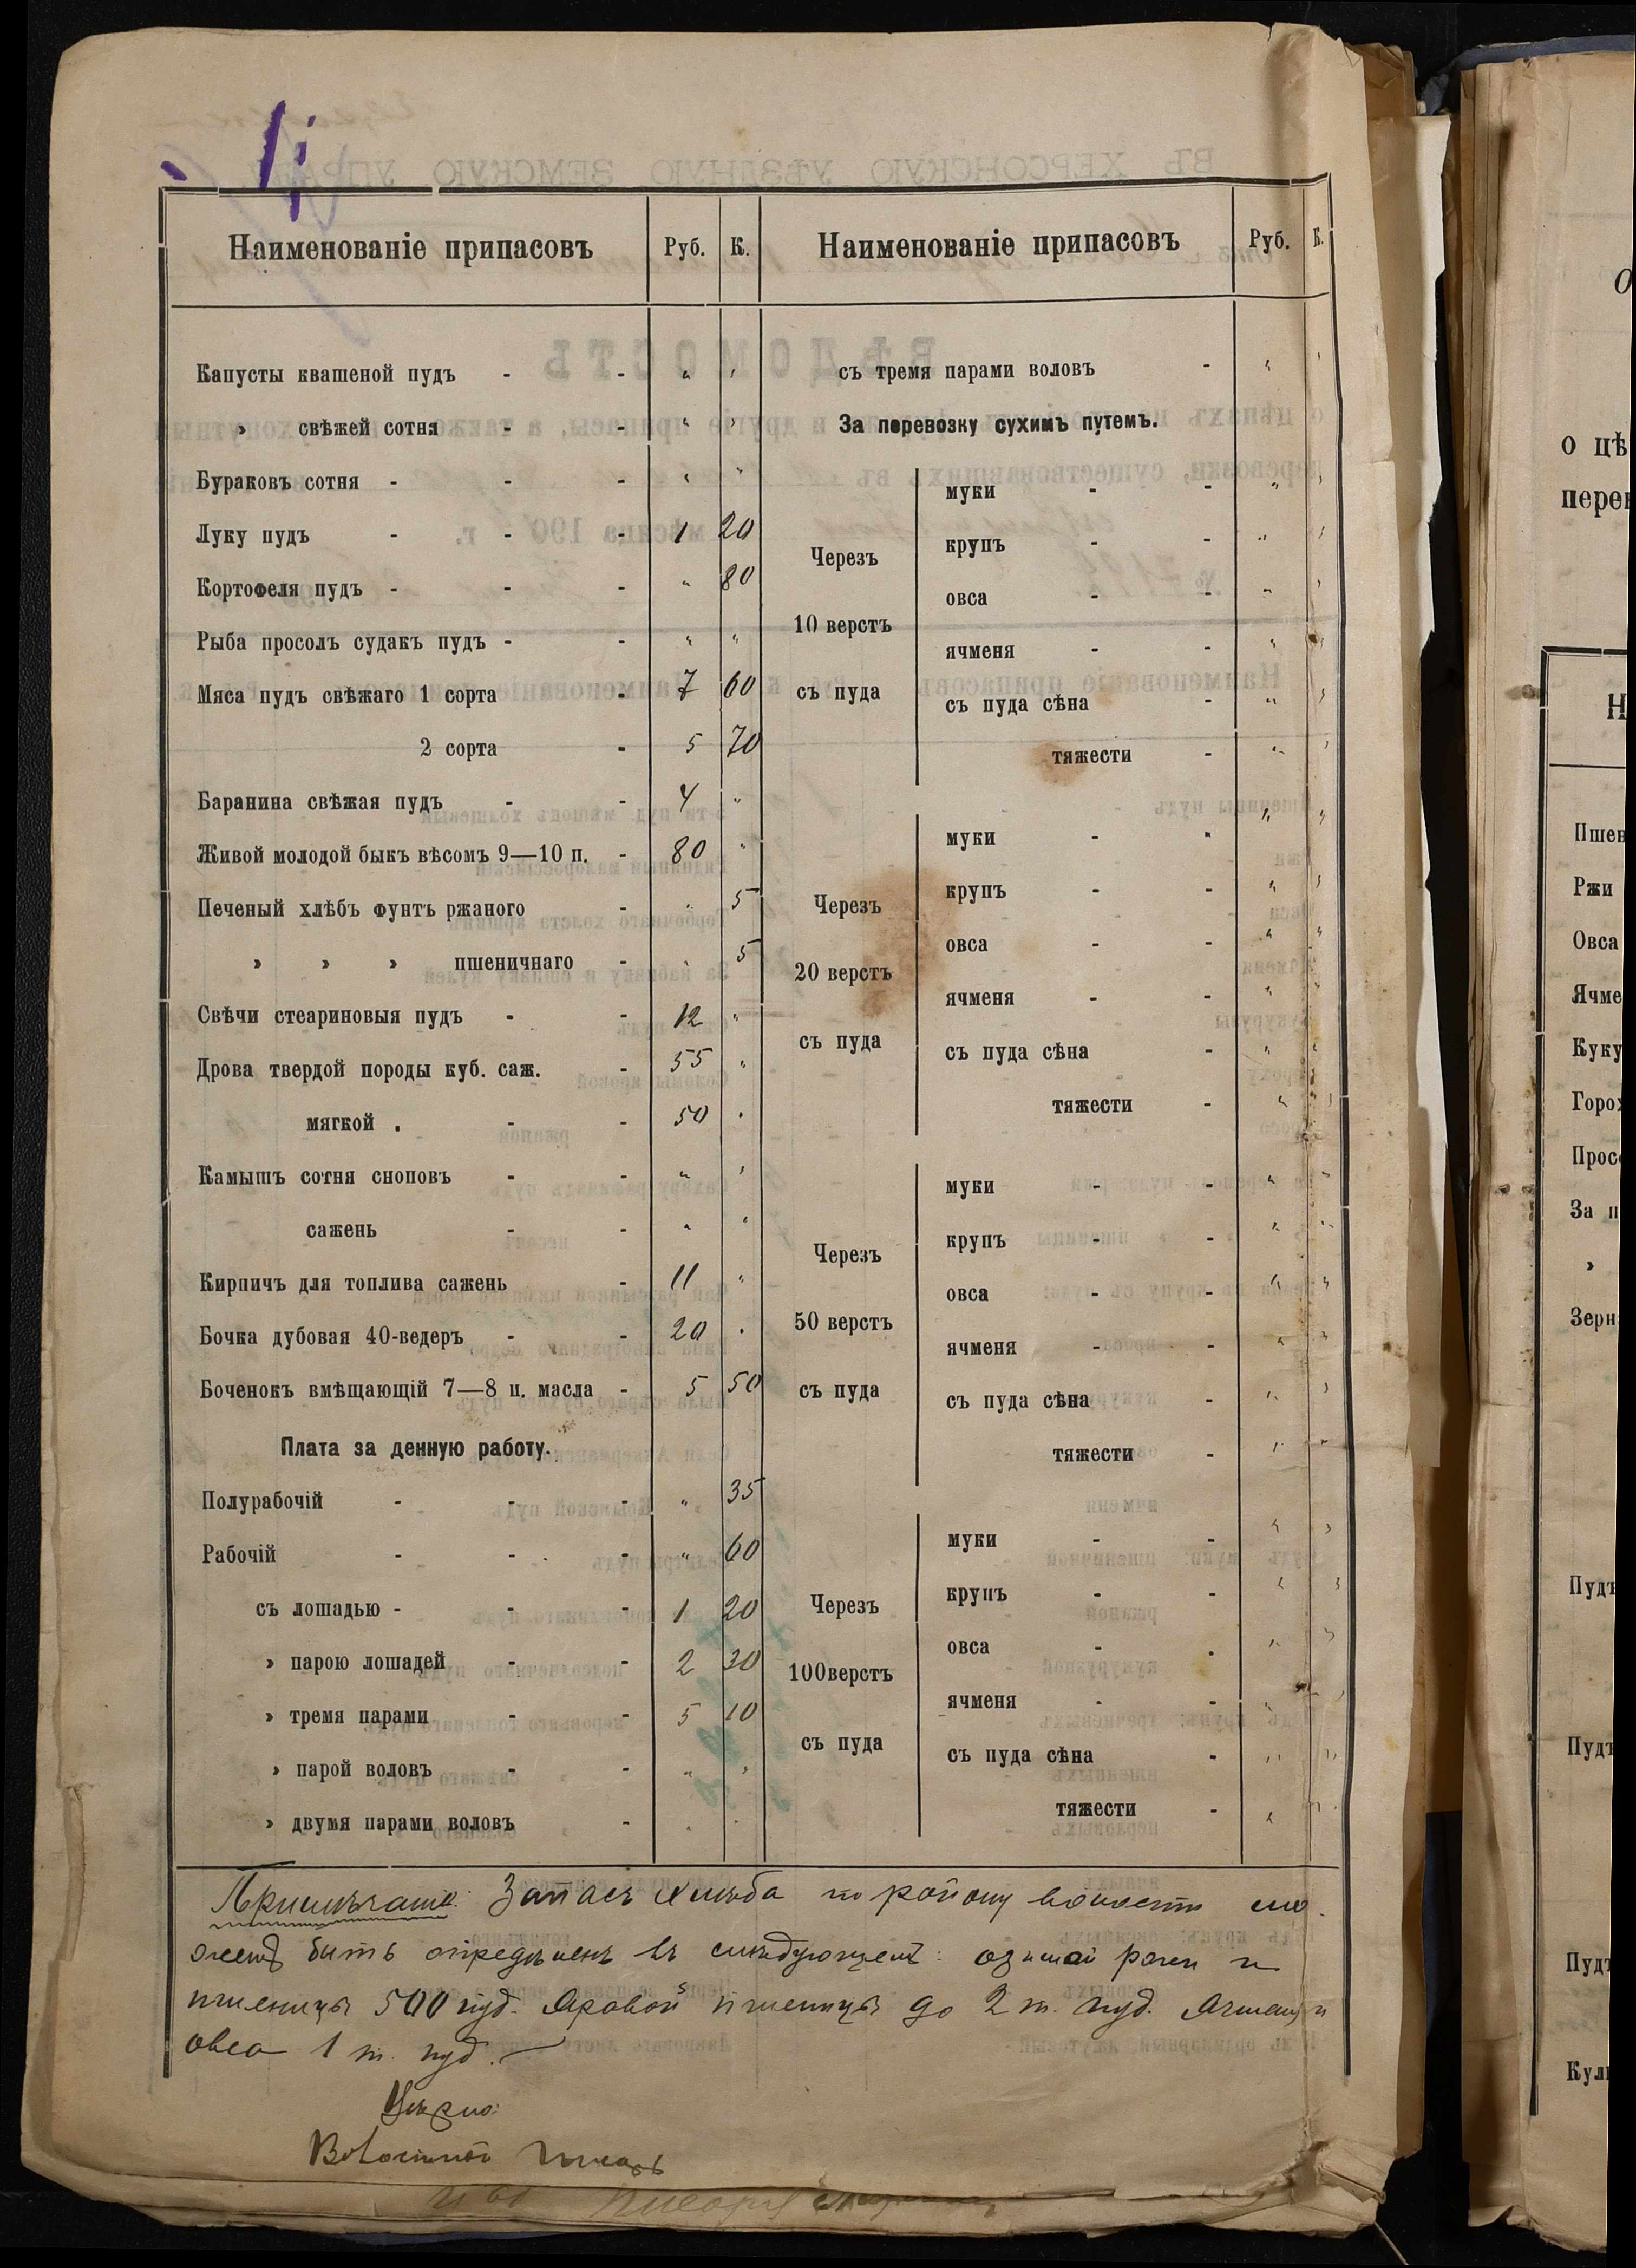 Наименованіе припасовъ Руб. К.
Капусты квашеной пудъ - - " "
» свѣжей сотня - - " "
Бураковъ сотня - - - " "
Луку пудъ - - - 1 20
Кортофеля пудъ - - - " 80
Рыба просолъ судакъ пудъ - - " "
Мяса пудъ свѣжаго 1 сорта - 7 60
2 сорта - 5 70
Баранина свѣжая пудъ - - 4 "
Живой молодой быкъ вѣсомъ 9—10 п. - 80 "
Печеный хлѣбъ фунтъ ржаного - " 5
» » » пшеничнаго - " 5
Свѣчи стеариновыя пудъ - - 12 "
Дрова твердой породы куб. саж. - 55 "
мягкой . - - 50 "
Камышъ сотня сноповъ - - " "
сажень - - " "
Кирпичъ для топлива сажень - 11 "
Бочка дубовая 40-ведеръ - - 20 "
Боченокъ вмѣщающій 7—8 п. масла - 5 50
Плата за денную работу.
Полурабочій - - - " 35
Рабочій - - - " 60
съ лошадью - - - 1 20
» парою лошадей - - 2 30
» тремя парами - - 5 10
» парой воловъ - - " "
» двумя парами воловъ - " "
Наименованіе припасовъ Руб. К.
съ тремя парами воловъ - " "
За перевозку сухимъ путемъ.
Через­ъ
10 верстъ
съ пуда
муки - - " "
крупъ - - " "
овса - - " "
ячменя - - " "
съ пуда сѣна - " "
тяжести - " "
Черезъ
20 верстъ
съ пуда
муки - - " "
крупъ - - " "
овса - - " "
ячменя - - " "
съ пуда сѣна - " "
тяжести - " "
Черезъ
50 верстъ
съ пуда
муки - - " "
крупъ - - " "
овса - - " "
ячменя - - " "
съ пуда сѣна - " "
тяжести - " "
Черезъ
100верстъ
съ пуда
муки - - " "
крупъ - - " "
овса - - " "
ячменя - - " "
съ пуда сѣна - " "
тяжести - " "
Примѣчаніе: Запасъ хлѣба по району волости мо-
жетъ быть опредѣленъ въ слѣдующемъ: озимой ржи и
пшеницы 500 пуд. Яровой пшеницы до 2 т. пуд. Ячменя и
овса 1 т. пуд.
Вѣрно:
Волостной писарь
о цѣ
перев
Пшен
Ржи
Овса
Ячме
Куку
Горох
Просо
За п
»
Зерн
Пудъ
Пудъ
Пудъ
Кул